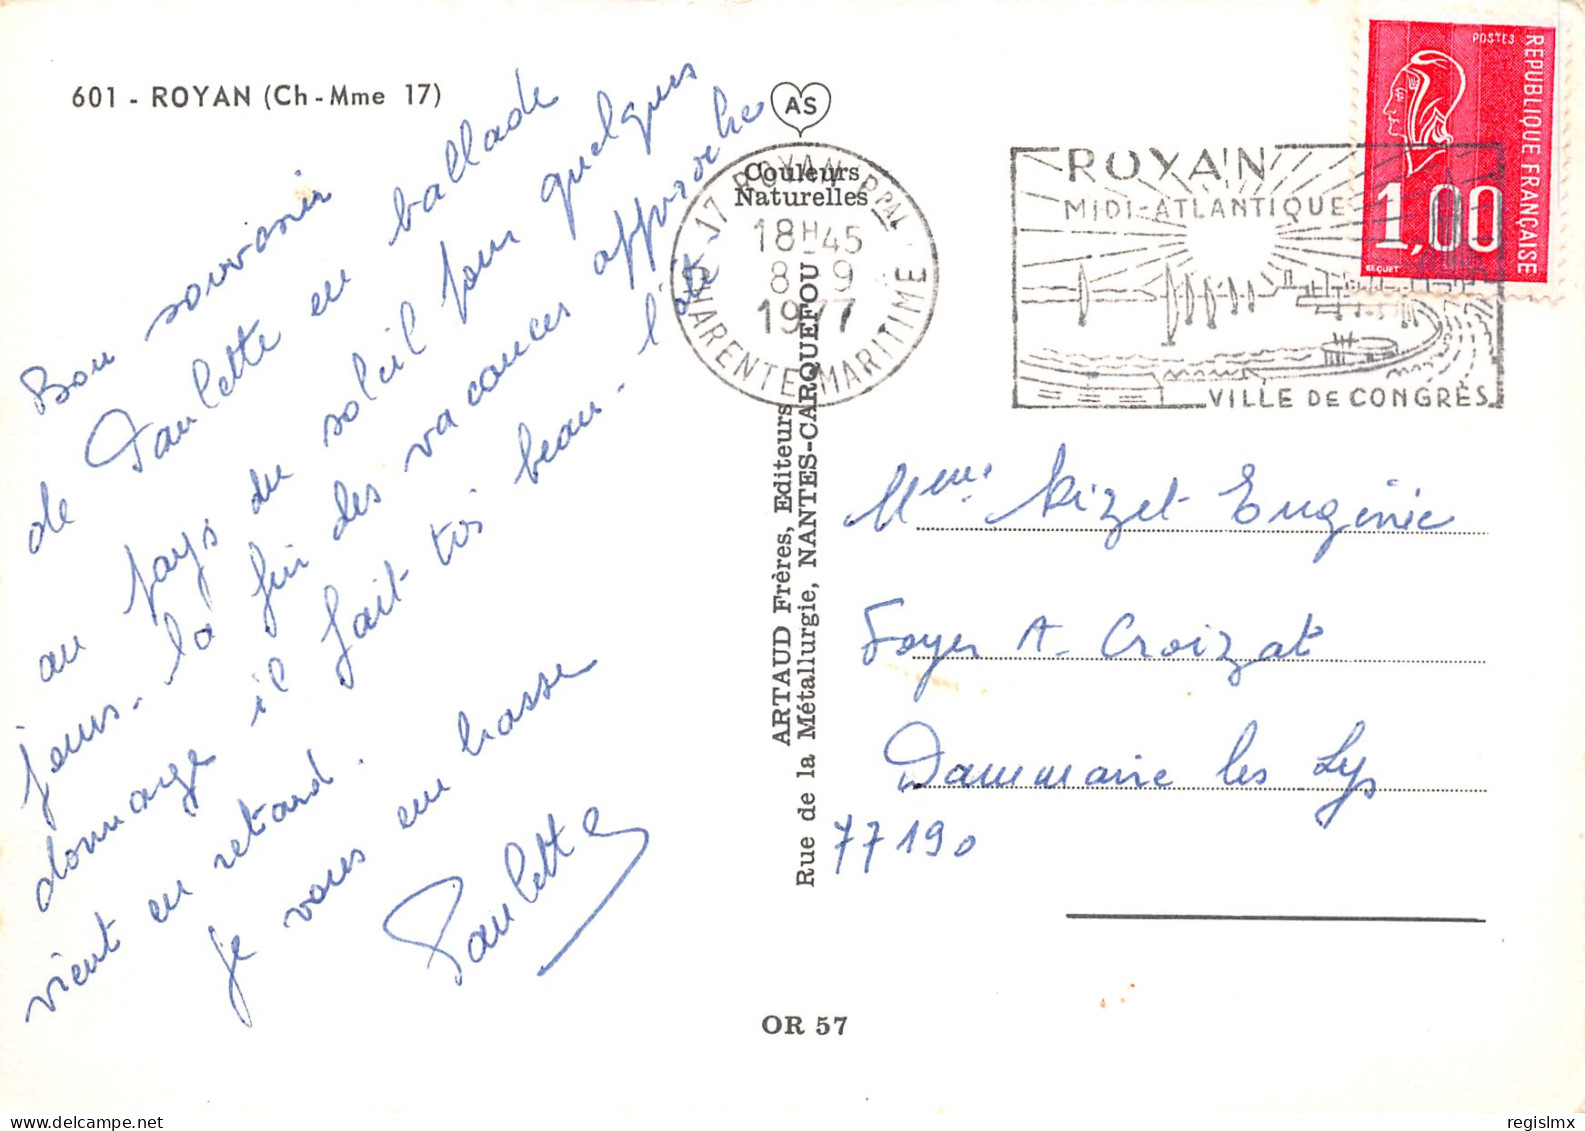 601 - ROYAN (Ch-Mme 17)
Bon souvenir
de Paulette en ballade
au pays du soleil pour quelques
jours - la fin des vacances approche
dommage il fait très beau - l'été
vient en retard.
Je vous embrasse
Paulette
AS
Couleurs
Naturelles
17 ROYAN PPAL
18H45
8-9
1977
CHARENTE MARITIME
ARTAUD Frères, Editeurs
Rue de la Métallurgie, NANTES-CARQUEFOU
OR 57
ROYAN
MIDI-ATLANTIQUE
VILLE DE CONGRÈS
POSTES
REPUBLIQUE FRANÇAISE
1,00
BEQUET
Mme Eugénie
Foyer A. Croizat
Dammarie les Lys
77190
regislmx